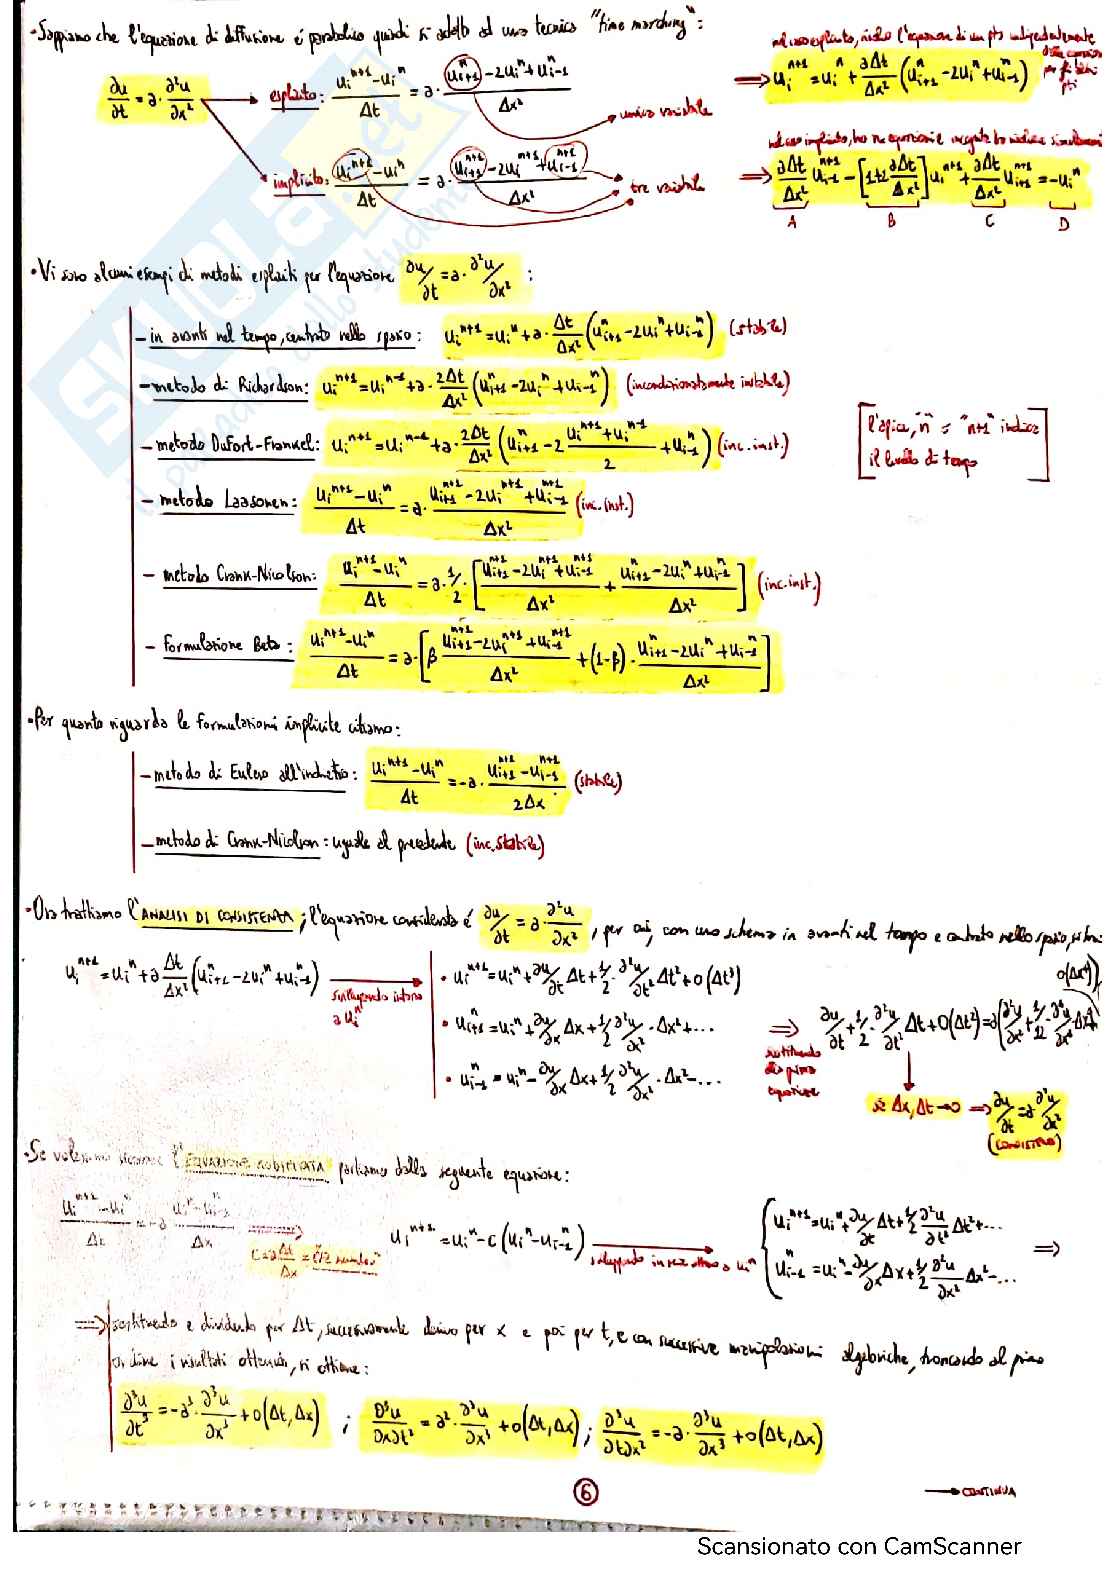 •Sappiamo che l'equazione di diffusione é parabolica quindi si adotta ad una tecnica "time marching":
∂u/∂t = a·∂²u/∂x²
esplicito: (uᵢⁿ⁺¹-uᵢⁿ)/Δt = a·(uᵢ₊₁ⁿ-2uᵢⁿ+uᵢ₋₁ⁿ)/Δx²
unica variabile
nel caso esplicito, risolvo l'equazione di un pto indipendentemente
⇒ uᵢⁿ⁺¹=uᵢⁿ+aΔt/Δx² (uᵢ₊₁ⁿ-2uᵢⁿ+uᵢ₋₁ⁿ)
per gli altri pti
implicito: (uᵢⁿ⁺¹-uᵢⁿ)/Δt = a·(uᵢ₊₁ⁿ⁺¹-2uᵢⁿ⁺¹+uᵢ₋₁ⁿ⁺¹)/Δx²
tre variabile
nel caso implicito, ho n equazioni e incognite da risolvere simultaneam
⇒ aΔt/Δx² uᵢ₋₁ⁿ⁺¹-[1+2aΔt/Δx²]uᵢⁿ⁺¹+aΔt/Δx² uᵢ₊₁ⁿ⁺¹=-uᵢⁿ
A B C D
•Vi sono alcuni esempi di metodi espliciti per l'equazione ∂u/∂t=a·∂²u/∂x² :
-in avanti nel tempo, centrato nello spazio: uᵢⁿ⁺¹=uᵢⁿ+a·Δt/Δx²(uᵢ₊₁ⁿ-2uᵢⁿ+uᵢ₋₁ⁿ) (stabile)
-metodo di Richardson: uᵢⁿ⁺¹=uᵢⁿ⁻¹+a·2Δt/Δx²(uᵢ₊₁ⁿ-2uᵢⁿ+uᵢ₋₁ⁿ) (incondizionatamente instabile)
-metodo DuFort-Frankel: uᵢⁿ⁺¹=uᵢⁿ⁻¹+a·2Δt/Δx²(uᵢ₊₁ⁿ-2(uᵢⁿ⁺¹+uᵢⁿ⁻¹)/2+uᵢ₋₁ⁿ) (inc.inst.)
[l'apice "n" e "n+1" indica
il livello di tempo]
-metodo Laasonen: (uᵢⁿ⁺¹-uᵢⁿ)/Δt=a·(uᵢ₊₁ⁿ⁺¹-2uᵢⁿ⁺¹+uᵢ₋₁ⁿ⁺¹)/Δx² (inc.inst.)
-metodo Crank-Nicolson: (uᵢⁿ⁺¹-uᵢⁿ)/Δt=a·1/2·[(uᵢ₊₁ⁿ⁺¹-2uᵢⁿ⁺¹+uᵢ₋₁ⁿ⁺¹)/Δx²+(uᵢ₊₁ⁿ-2uᵢⁿ+uᵢ₋₁ⁿ)/Δx²] (inc.inst.)
-Formulazione Beta: (uᵢⁿ⁺¹-uᵢⁿ)/Δt=a·[β(uᵢ₊₁ⁿ⁺¹-2uᵢⁿ⁺¹+uᵢ₋₁ⁿ⁺¹)/Δx²+(1-β)·(uᵢ₊₁ⁿ-2uᵢⁿ+uᵢ₋₁ⁿ)/Δx²]
•Per quanto riguarda le formulazioni implicite citiamo:
-metodo di Eulero all'indietro: (uᵢⁿ⁺¹-uᵢⁿ)/Δt=-a·(uᵢ₊₁ⁿ⁺¹-uᵢ₋₁ⁿ⁺¹)/2Δx (stabile)
-metodo di Crank-Nicolson: uguale al precedente (inc.stabile)
•Ora trattiamo l'ANALISI DI CONSISTENZA; l'equazione considerata é ∂u/∂t=a·∂²u/∂x², per cui, con uno schema in avanti nel tempo e centrato nello spazio,
uᵢⁿ⁺¹=uᵢⁿ+aΔt/Δx²(uᵢ₊₁ⁿ-2uᵢⁿ+uᵢ₋₁ⁿ)
sviluppando intorno
a uᵢⁿ
• uᵢⁿ⁺¹=uᵢⁿ+∂u/∂tΔt+1/2·∂²u/∂t²Δt²+O(Δt³)
• uᵢ₊₁ⁿ=uᵢⁿ+∂u/∂xΔx+1/2∂²u/∂x²·Δx²+...
• uᵢ₋₁ⁿ=uᵢⁿ-∂u/∂xΔx+1/2∂²u/∂x²·Δx²-...
⇒ ∂u/∂t+1/2·∂²u/∂t²Δt+O(Δt²)=a(∂²u/∂x²+1/12·∂⁴u/∂x⁴Δx² O(Δx⁴))
sostituendo
alla prima
equazione
se Δx,Δt→0 ⇒∂u/∂t=a∂²u/∂x²
(CONSISTENZA)
•Se volessimo ricavare l'EQUAZIONE MODIFICATA partiamo dalla seguente equazione:
(uᵢⁿ⁺¹-uᵢⁿ)/Δt=-a(uᵢⁿ-uᵢ₋₁ⁿ)/Δx
C=aΔt/Δx="CFL number"
uᵢⁿ⁺¹=uᵢⁿ-C(uᵢⁿ-uᵢ₋₁ⁿ)
sviluppando in serie attorno a uᵢⁿ
{uᵢⁿ⁺¹=uᵢⁿ+∂u/∂tΔt+1/2∂²u/∂t²Δt²+...
uᵢ₋₁ⁿ=uᵢⁿ-∂u/∂xΔx+1/2∂²u/∂x²Δx²-... ⇒
⇒sostituendo e dividendo per Δt, successivamente derivo per x e poi per t, e con successive manipolazioni algebriche, troncando al primo
ordine i risultati ottenuti, si ottiene:
∂³u/∂t³=-a³·∂³u/∂x³+O(Δt,Δx) ; ∂³u/∂x∂t²=a²·∂³u/∂x³+O(Δt,Δx) ; ∂³u/∂t∂x²=-a·∂³u/∂x³+O(Δt,Δx)
6
→CONTINUA
Scansionato con CamScanner
SKUOLA.net